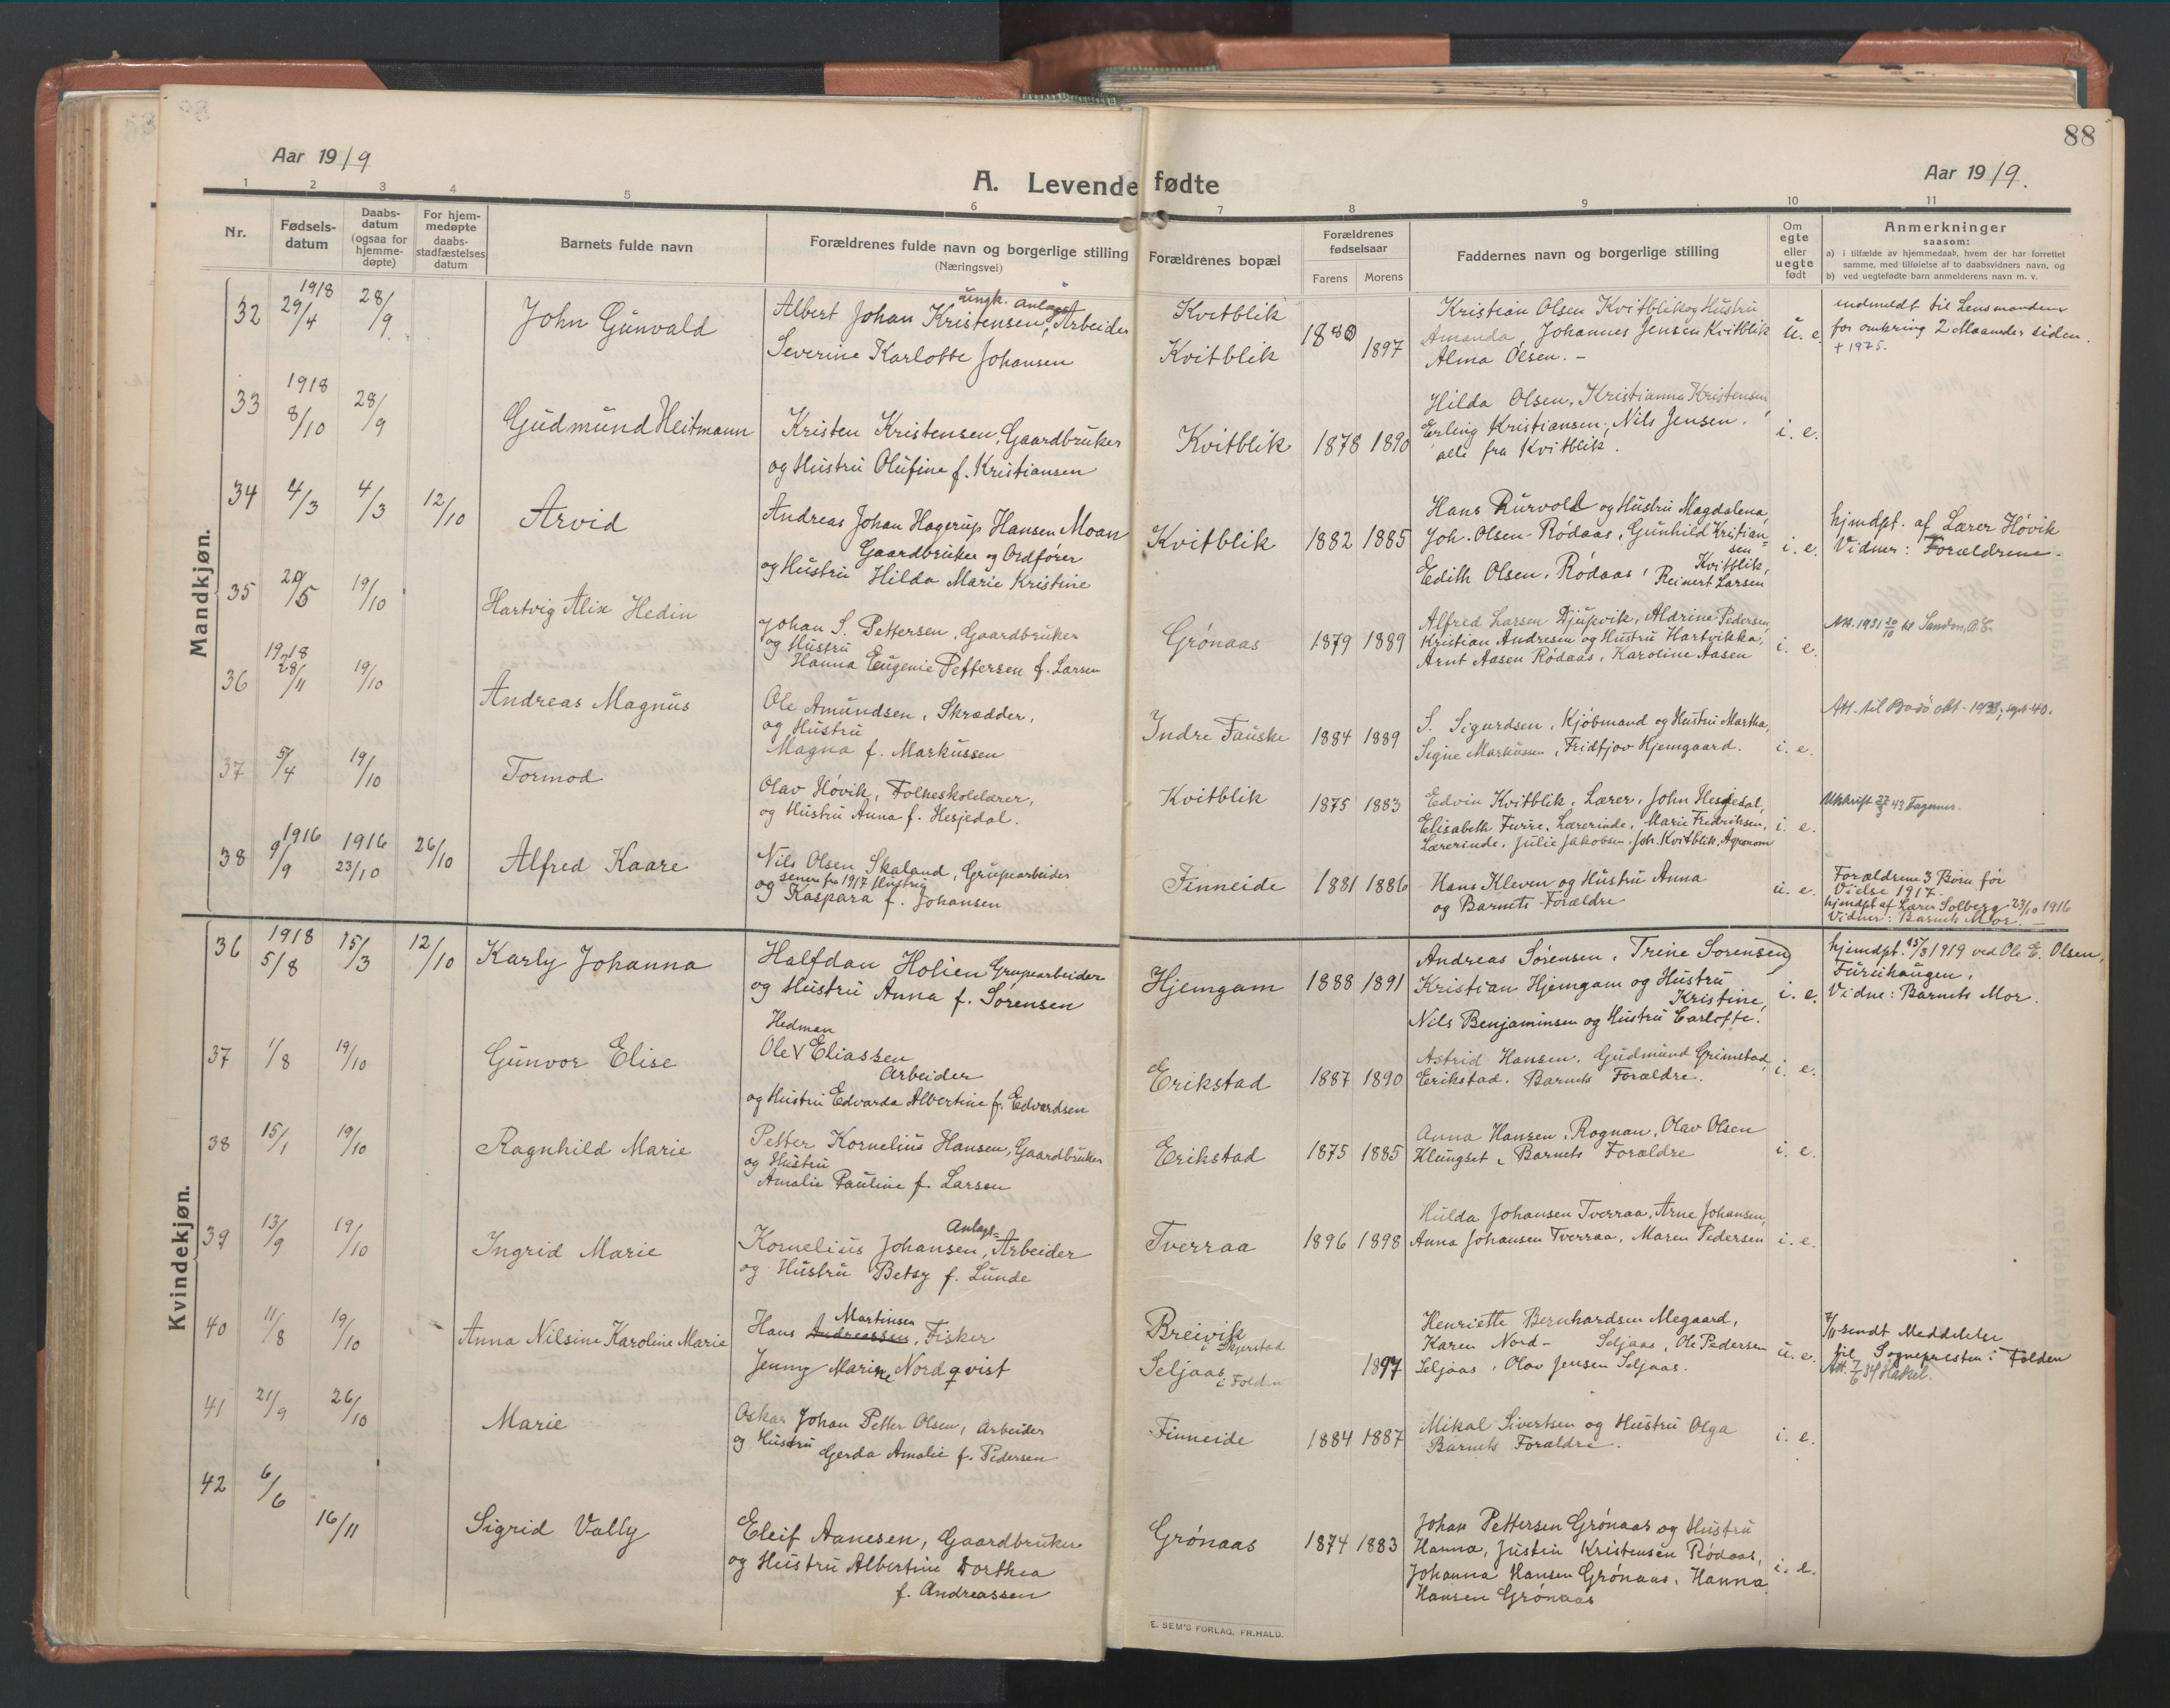 88
Aar 1919
A. Levende fødte
Aar 1919.
1 2 3 4 5 6 7 8 9 10 11
Nr.
Fødsels-
datum
Daabs-
datum
(ogsaa for
hjemme-
døpte)
For hjem-
medøpte
daabs-
stadfæstelses
datum
Barnets fulde navn
Forældrenes fulde navn og borgerlige stilling
(Næringsvei)
Forældrenes bopæl
Forældrenes
fødselsaar
Farens Morens
Faddernes navn og borgerlige stilling
Om
egte
eller
uegte
født
Anmerkninger
saasom:
a) i tilfælde av hjemmedaab, hvem der har forrettet
samme, med tilføielse af to daabsvidners navn, og
b) ved uegtefødte barn anmelderens navn m. v.
Mandkjøn.
32 1918 29/4 28/9.
John Gunvald
ungk. Anlags
Albert Johan Kristensen, Arbeider
Severine Karlotte Johansen
Kvitblik
Kvitblik
1880 1897
Kristian Olsen Kvitblik og Hustru
Amanda, Johannes Jensen Kvitblik
Alma Olsen. -
u. e.
indmeldt til Lensmanden
for omkring 2 Maaneder siden.
+ 1975.
33 1918 8/10 28/9
Gudmund Heitmann
Kristen Kristensen, Gaardbruker
og Hustru Olufine f. Kristiansen
Kvitblik
1878 1890
Hilda Olsen, Kristianna Kristensen,
Erling Kristiansen, Nils Jensen.
alle fra Kvitblik.
i. e.
34 4/3 4/3 12/10
Arvid
Andreas Johan Hagerup Hansen Moan
Gaardbruker og Ordfører
og Hustru Hilda Marie Kristine
Kvitblik
1882 1885
Hans Rurvold og Hustru Magdalena,
Joh. Olsen Rødaas, Gunhild Kristian=
sen Kvitblik,
Edith Olsen, Rødaas, Reinert Larsen
i. e.
hjmdpt. af Lærer Høvik
Vidner: Forældrene.
35 20/5 19/10
Hartvig Alix Hedin
Johan S. Pettersen, Gaardbruker
og Hustru
Hanna Eugenie Pettersen f. Larsen
Grønaas
1879 1889
Alfred Larsen Djupvik, Aldrine Pedersen,
Kristian Andresen og Hustru Hartvikka,
Arnt Aasen Rødaas, Karoline Aasen
i. e.
36 1918 28/11 19/10
Andreas Magnus
Ole Amundsen, Skrædder,
og Hustru
Magna f. Markussen
Indre Fauske
1884 1889
S. Sigurdsen, Kjøbmand og Hustru Martha,
Signe Markussen, Fridtjov Hjemgaard.
i. e.
37 5/4 19/10
Tormod
Olav Høvik, Folkeskolelærer,
og Hustru Anna f. Hesjedal.
Kvitblik
1875 1883
Edvin Kvitblik, Lærer, John Hesjedal,
Elisabeth Furre, Lærerinde, Marie Fredriksen,
Lærerinde, Julie Jakobsen, Joh. Kvitblik, Agronom
i. e.
38 1916 9/9 1916 23/10 26/10
Alfred Kaare
Nils Olsen Skaland, Grubearbeider
senere fra 1917 Hustru
og Kaspara f. Johansen
Finneide
1881 1886
Hans Kleven og Hustru Anna
og Barnets Forældre
u. e.
Forældrene 3 Børn før
Vielse 1917.
hjmdpt af Lærer Solberg 23/10 1916
Vidner: Barnets Mor.
Kvindekjøn.
36 1918 5/8 15/3 12/10
Karly Johanna
Halfdan Holien Grubearbeider
og Hustru Anna f. Sørensen
Hjemgam
1888 1891
Andreas Sørensen, Trine Sørensen,
Kristian Hjemgam og Hustru
Kristine,
Nils Benjaminsen og Hustru Carlotte.
i. e.
hjemdpt. 15/3 1919 ved Ole E. Olsen,
Furuhaugen,
Vidne: Barnets Mor.
37 1/8 19/10
Gunvor Elise
Hedman
Ole V Eliassen
Arbeider
og Hustru Edvarda Albertine f. Edvardsen
Erikstad
1887 1890
Astrid Hansen, Gudmund Grimstad,
Erikstad. Barnets Forældre.
i. e.
38 15/1 19/10
Ragnhild Marie
Petter Kornelius Hansen, Gaardbruker
og Hustru
Amalie Pauline f. Larsen
Erikstad
1875 1885
Anna Hansen, Rognan, Olav Olsen
Klungset, Barnets Forældre
i. e.
39 13/9 19/10
Ingrid Marie
Anlags=
Kornelius Johansen, Arbeider
og Hustru Betsy f. Lunde
Tverraa
1896 1898
Hulda Johansen Tverraa, Arne Johansen,
Anna Johansen Tverraa, Maren Pedersen
i. e.
40 11/8 19/10
Anna Nilsine Karoline Marie
Martinsen
Hans Andreassen, Fisker
Jenny Marine Nordqvist
Breivik
i Skjerstad
Seljaas
i Folden
1897
Henriette Bernhardsen Megaard,
Karen Nord- Seljaas, Ole Pedersen
Seljaas, Olav Jensen Seljaas.
u. e.
7/11 sendt Meddelelse
til Sognepresten i Folden
41 21/9 26/10
Marie
Oskar Johan Petter Olsen, Arbeider
og Hustru
Gerda Amalie f. Pedersen
Finneide
1884 1887
Mikal Sivertsen og Hustru Olga
Barnets Forældre.
i. e.
42 6/6 16/11
Sigrid Vally
Eleif Aanesen, Gaardbruker
og Hustru Albertine Dorthea
f. Andreassen
Grønaas
1874 1883
Johan Pettersen Grønaas og Hustru
Hanna, Justin Kristensen Rødaas,
Johanna Hansen Grønaas, Hanna
Hansen Grønaas
i. e.
E. SEM'S FORLAG, FR.HALD.